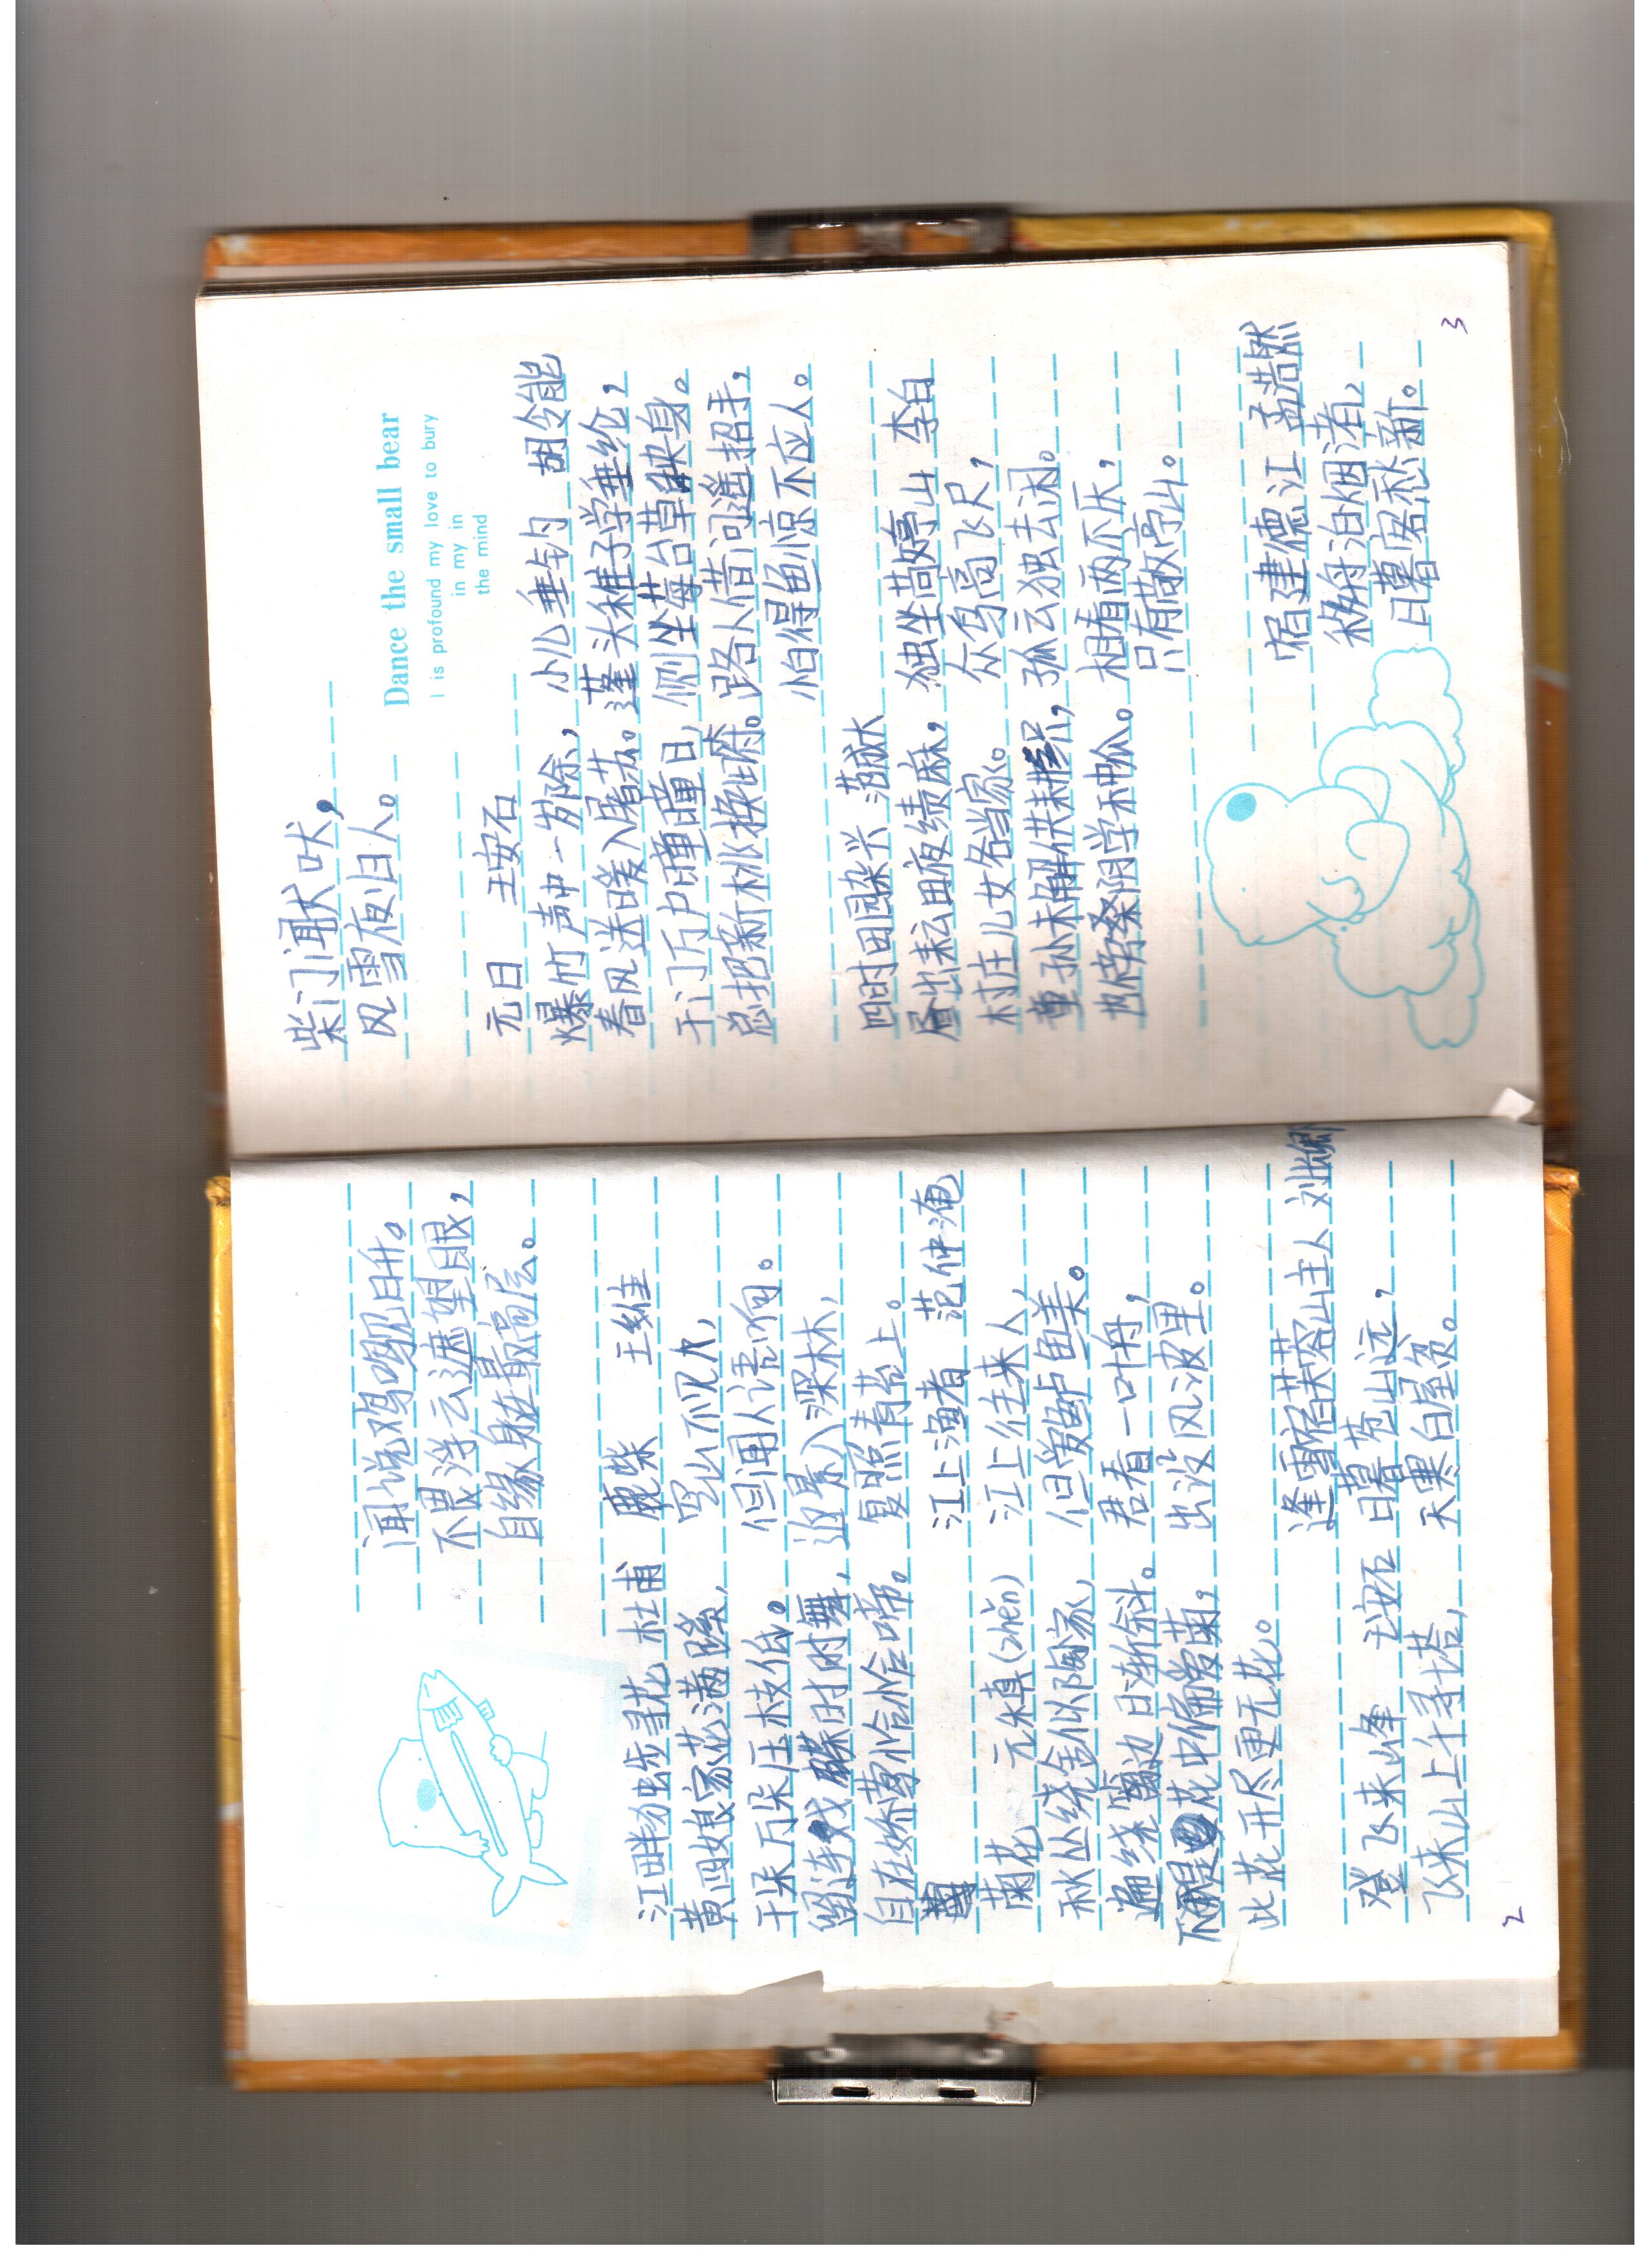 江畔独步寻花 杜甫
黄四娘家花满蹊,
千朵万朵压枝低。
留连戏蝶时时舞,
自在娇莺恰恰啼。
菊花 元稹(zhěn)
秋丛绕舍似陶家,
遍绕篱边日渐斜。
不是花中偏爱菊,
此花开尽更无花。
登飞来峰 王安石
飞来山上千寻塔,
闻说鸡鸣见日升。
不畏浮云遮望眼,
自缘身在最高层。
鹿柴 王维
空山不见人,
但闻人语响。
返景入深林,
复照青苔上。
江上渔者 范仲淹
江上往来人,
但爱鲈鱼美。
君看一叶舟,
出没风波里。
逢雪宿芙蓉山主人 刘长卿
日暮苍山远,
天寒白屋贫。
2
柴门闻犬吠,
风雪夜归人。
元日 王安石
爆竹声中一岁除,
春风送暖入屠苏。
千门万户曈曈日,
总把新桃换旧符。
四时田园杂兴 范成大
昼出耘田夜绩麻,
村庄儿女各当家。
童孙未解供耕织,
也傍桑阴学种瓜。
Dance the small bear
I is profound my love to bury
in my in
the mind
小儿垂钓 胡令能
蓬头稚子学垂纶,
侧坐莓苔草映身。
路人借问遥招手,
怕得鱼惊不应人。
独坐敬亭山 李白
众鸟高飞尽,
孤云独去闲。
相看两不厌,
只有敬亭山。
宿建德江 孟浩然
移舟泊烟渚,
日暮客愁新。
3